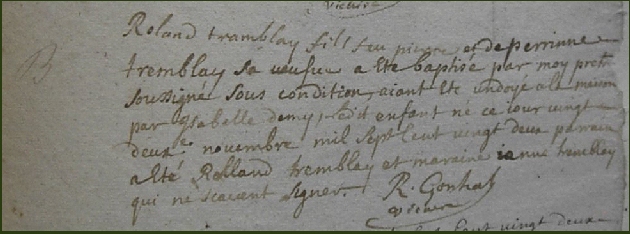 vicaire
B
Roland tramblay fils feu pierre et de perrinne
tremblay sa veufue a Ete baptisé par moy pret
soussigné sous condition, aiant Ete undoyé a la meison
par ysabelle demy, ledit enfant né ce iour vingt
deux.e novembre mil sept Cent vingt deux parrain
a Eté Rolland tremblay et maraine ianne tremblay
qui ne scavent signer. R. Gonhal
vicaire
Cent vingt deux